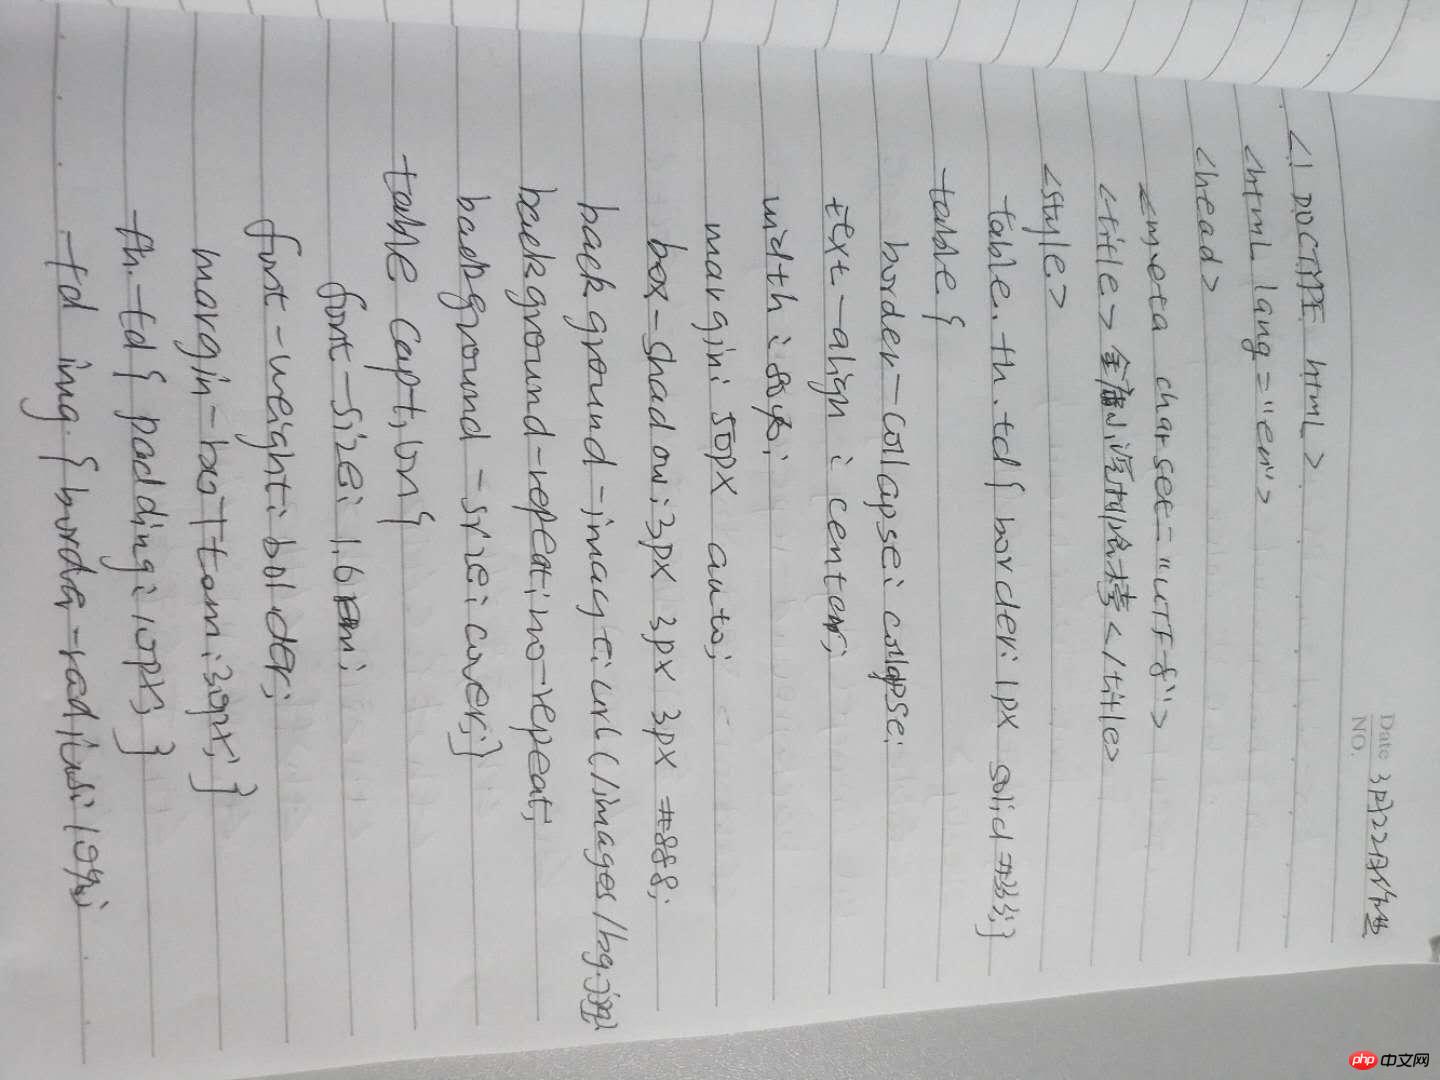 Date 3月22日作业
NO.
<! DOCTYPE html>
<html lang="en">
<head>
<meta charset="UTF-8">
<title>金</title>
<style>
table.th.td{border:1px solid #333;}
table{
border-collapse:collapse;
text-align:center;
width:80%;
margin:50px auto;
box-shadow:3px 3px 3px #888;
background-image:url(/images/bg.jpg
background-repeat:no-repeat;
background-size:cover;}
table caption{
font-size:1.6em;
font-weight:bolder;
margin-bottom:30px;}
th.td{padding:10px;}
td img.{border-radius:10%;
php 中文网